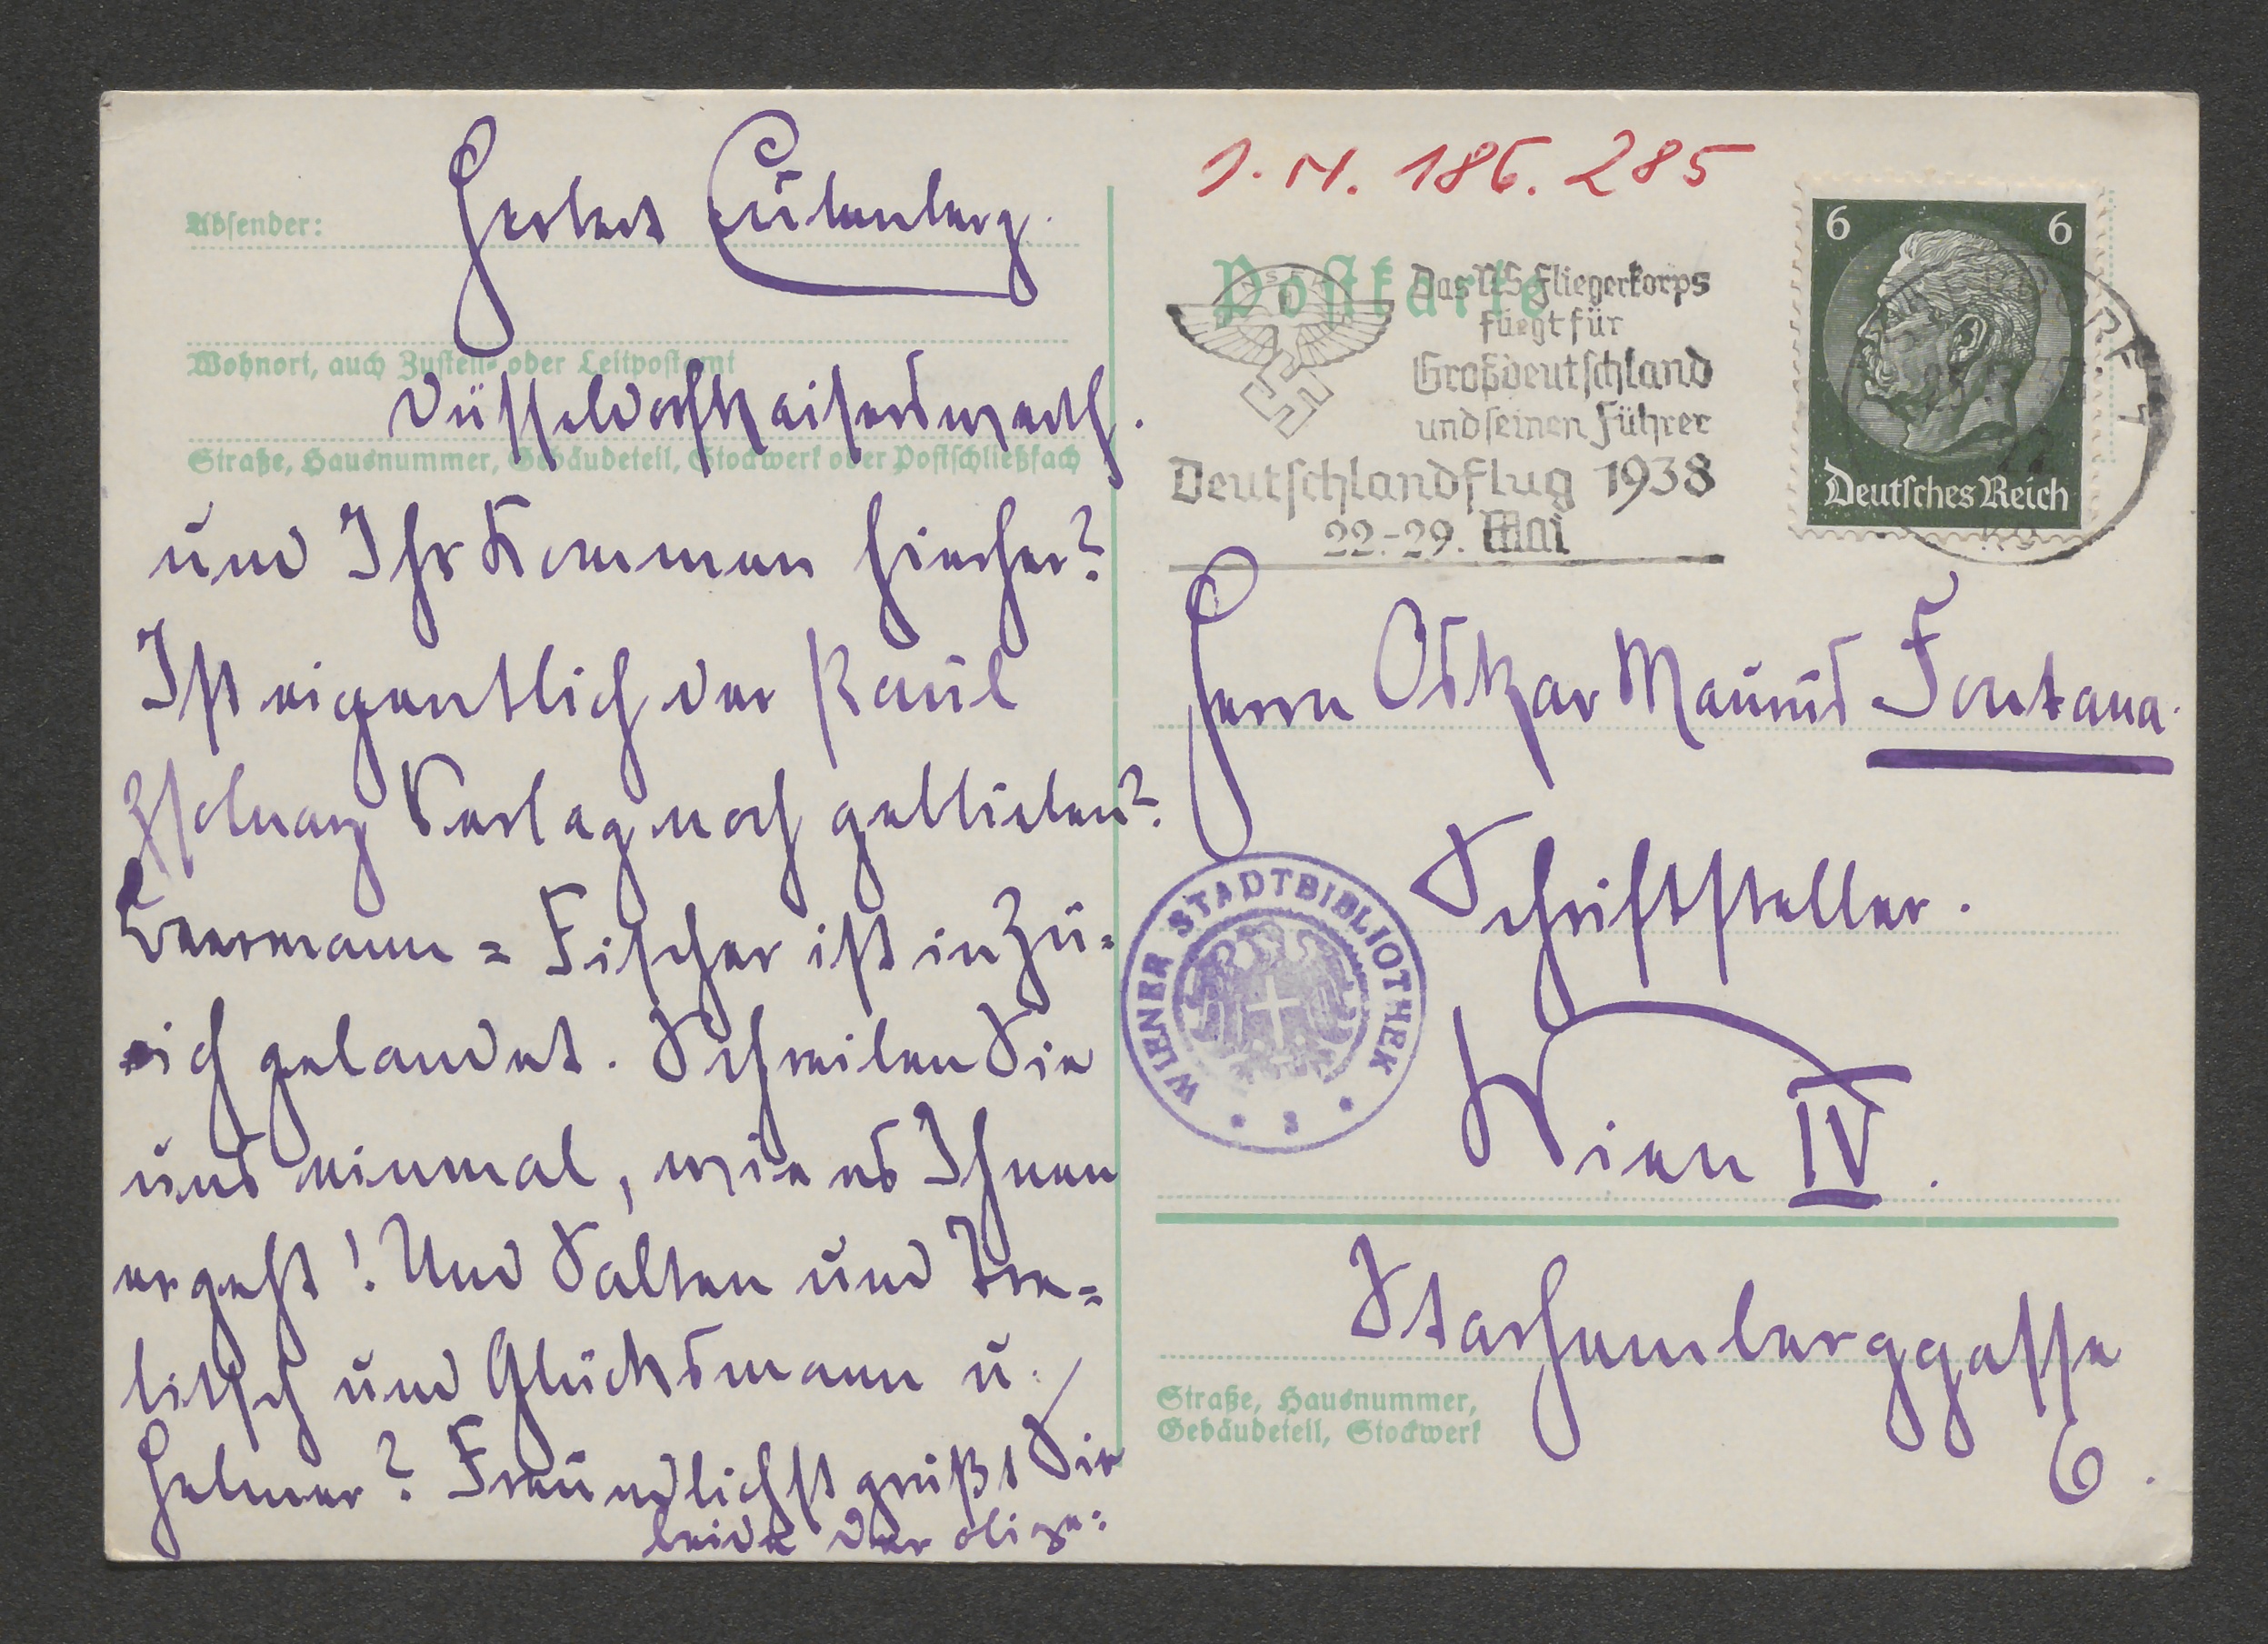 Absender:
Herbert Eulenberg.
Wohnort, auch Zustell- oder Leitpostamt
Düsseldorf Kaiserswerth.
Straße, Hausnummer, Gebäudeteil, Stockwerk oder Postschließfach
und Ihr Kommen hierher?
Ist eigentlich der Paul
Zsolnay Verlag noch geblieben?
Beermann = Fischer ist in Zü-
rich gelandet. Schreiben Sie
uns einmal, wie es Ihnen
ergeht! Und Salten und Tre-
bitsch und Glücksmann u.
Helmer? Freundlichst grüßt Sie
beide der obige:
I. N. 186.285
Postkarte
Das NS Fliegerkorps
fliegt für
Großdeutschland
und seinen Führer
Deutschlandflug 1938
22.-29. Mai
6 6
Deutsches Reich
Herrn Oskar Maurus Fontana.
Schriftsteller.
WIENER STADTBIBLIOTHEK
Wien IV.
Starhemberggasse
6.
Straße, Hausnummer,
Gebäudeteil, Stockwerk